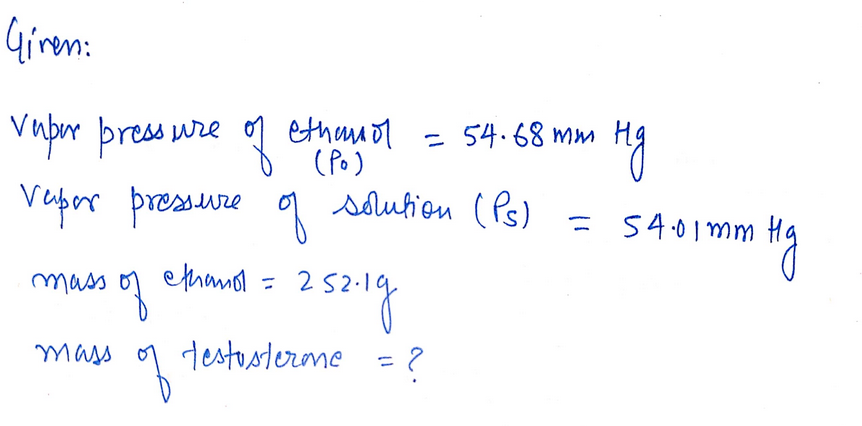 Given:
Vapor pressure of ethanol = 54.68 mm Hg
(P₀)
Vapor pressure of solution (Ps) = 54.01 mm Hg
mass of ethanol = 252.1g
mass of testosterone = ?